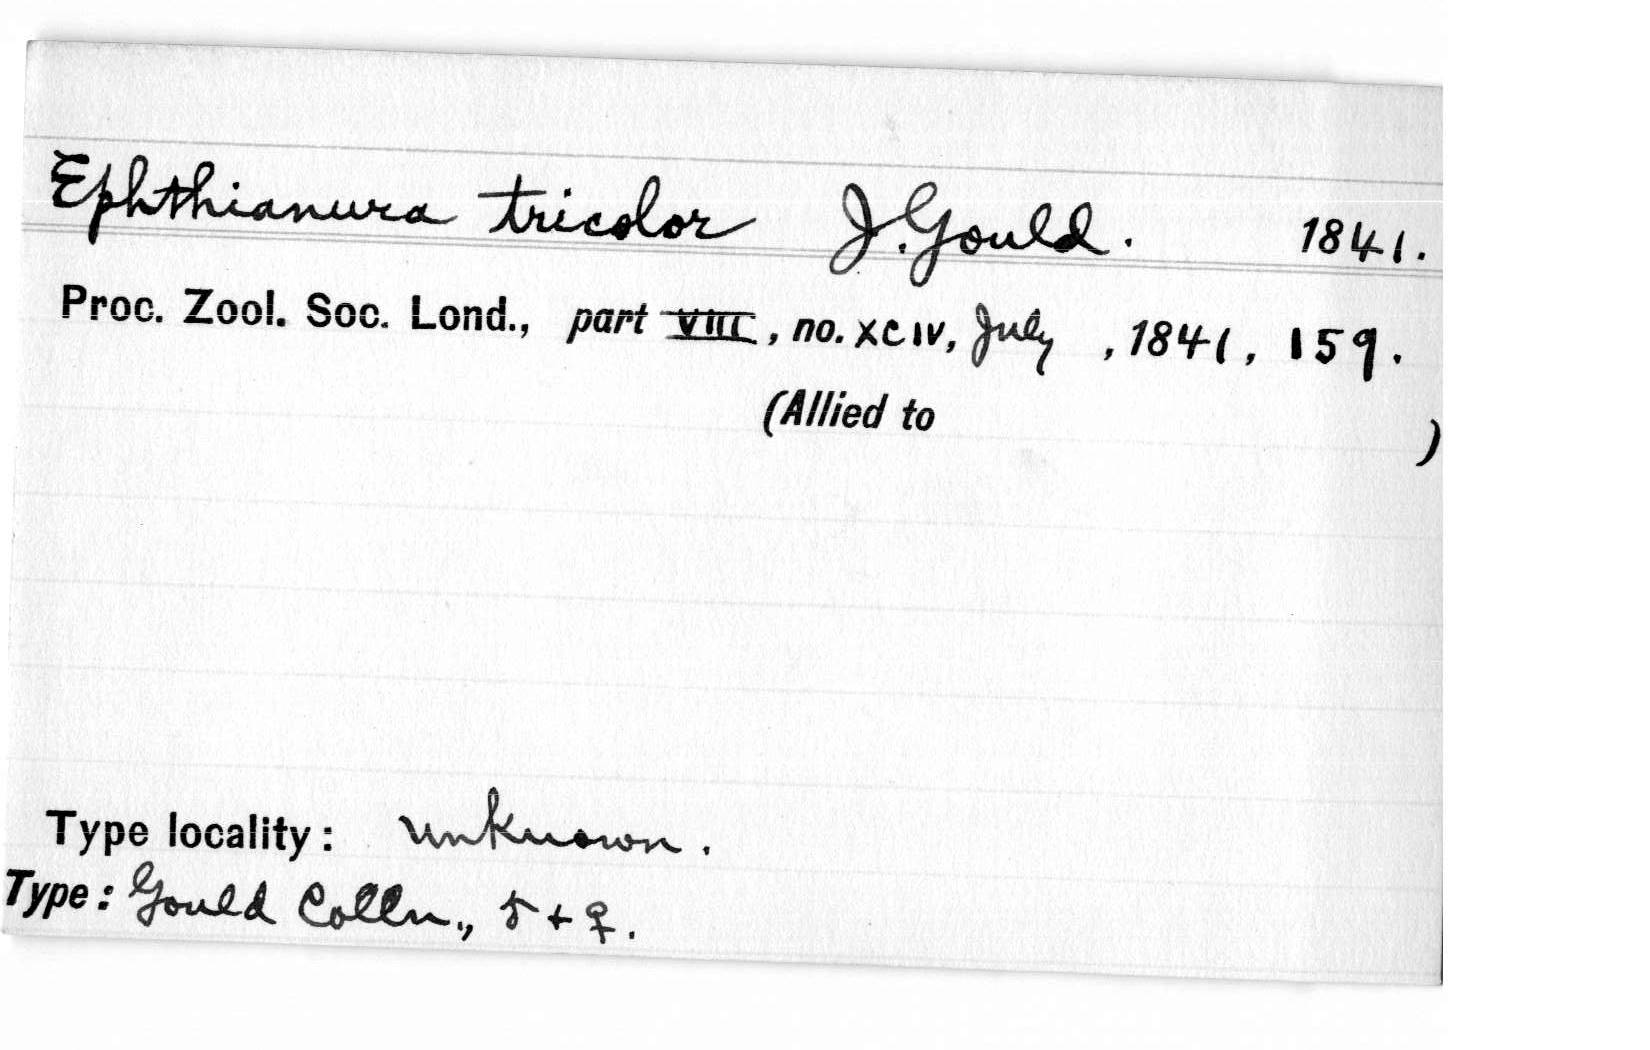 Ephthianura tricolor J. Gould. 1841.
Proc. Zool. Soc. Lond., part VIII, no. XCIV, July, 1841, 159.
(Allied to )
Type locality: unknown.
Type: Gould Colln., ♂ + ♀.